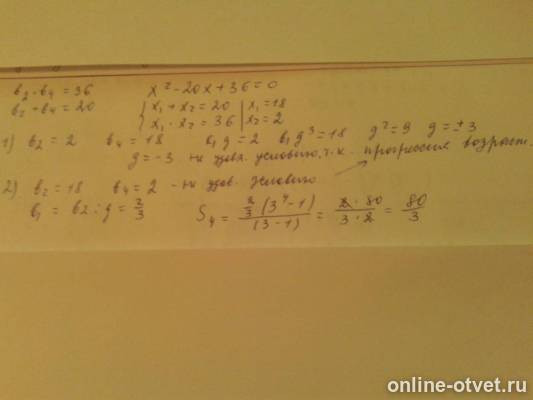 b₂ · b₄ = 36 x² - 20x + 36 = 0
b₂ + b₄ = 20 { x₁ + x₂ = 20 | x₁ = 18
x₁ · x₂ = 36 | x₂ = 2
1) b₂ = 2 b₄ = 18 b₁q = 2 b₁q³ = 18 q² = 9 q = ±3
q = -3 - не удовл. условию, т.к. прогрессия возраст.
2) b₂ = 18 b₄ = 2 - не удов. условию
b₁ = b₂ : q = 2/3 S₄ = 2/3 (3⁴ - 1) / (3 - 1) = 2 · 80 / 3 · 2 = 80/3
online-otvet.ru